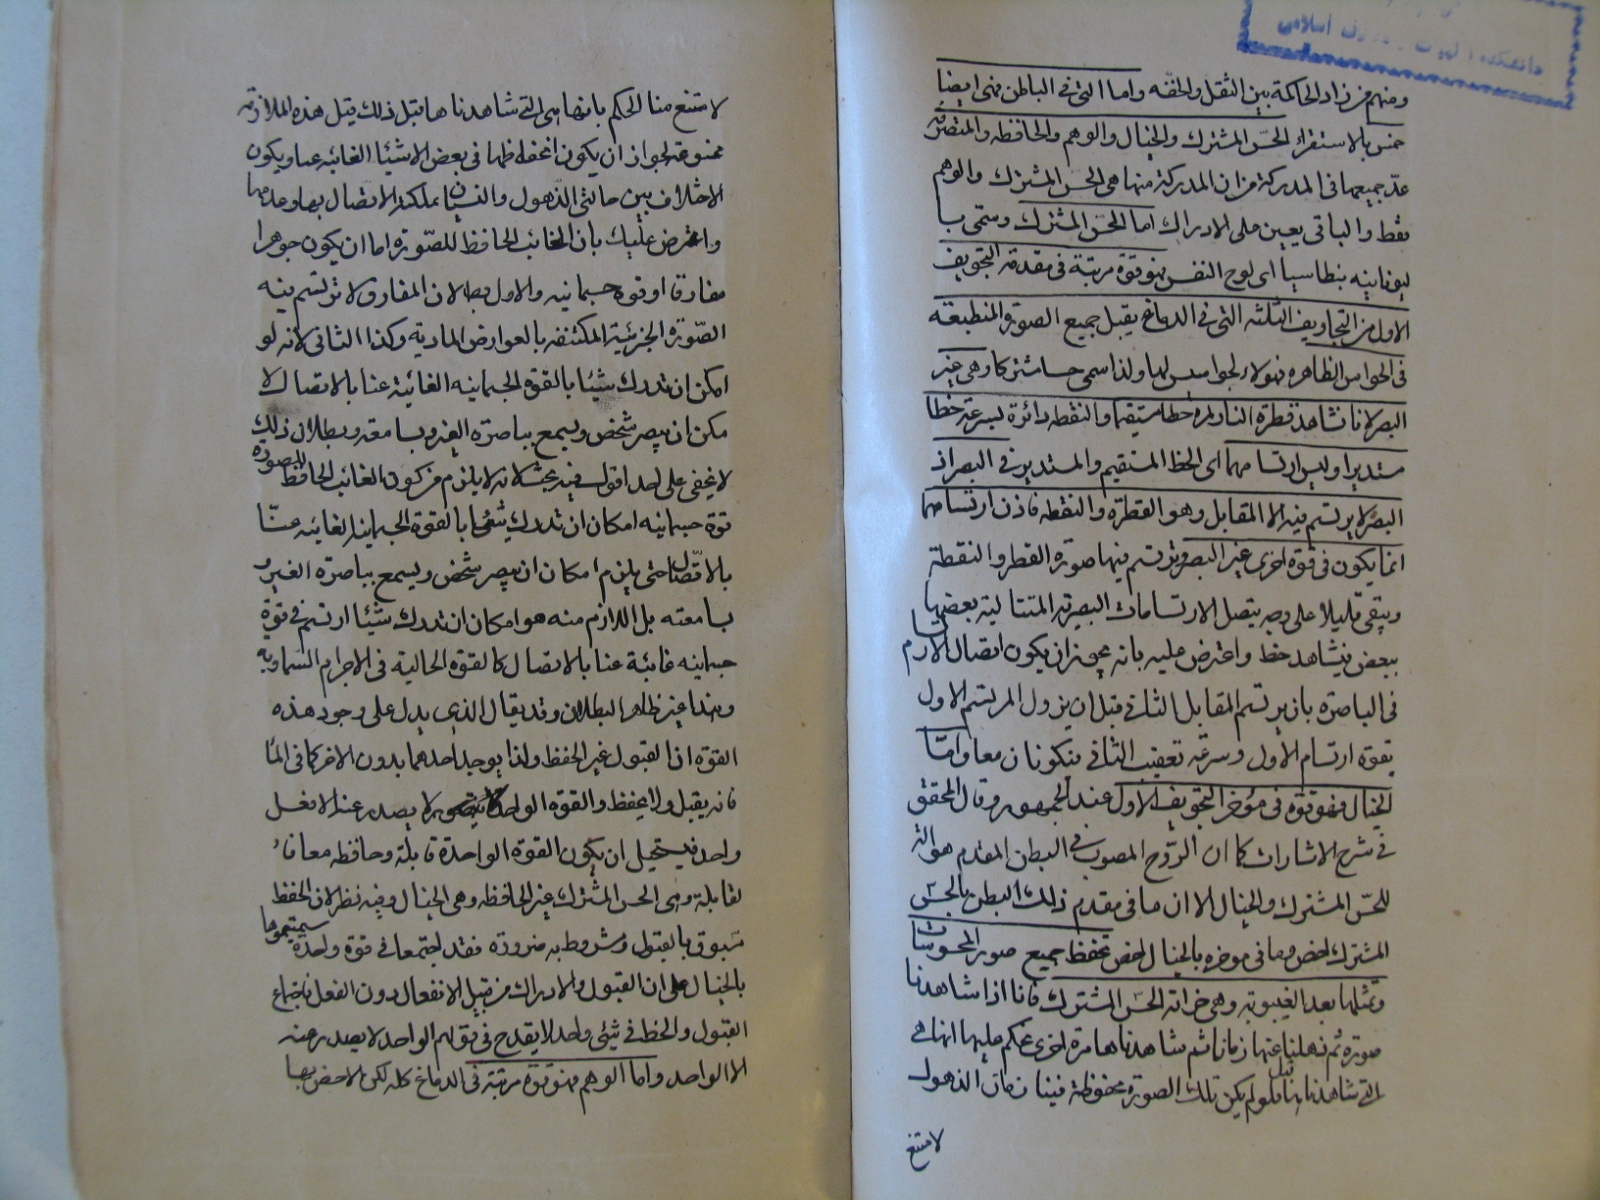 ومنهم من زاد الحاكمة بين الثقل والخفه واما التى فى الباطن فهى ايضا
خمس بالاستقراء الحسّ المشترك والخيال والوهم والحافظه والمتصرّفة
عدّ جميعها فى المدركة مع ان المدركة منها هى الحسّ المشترك والوهم
فقط والباقى يعين على الادراك اما الحسّ المشترك وسمّى با
ليونانيه بنطاسيا اى لوح النفس فهو قوة مرتبة فى مقدمة التجويف
الاول من التجاويف الثلثه التى فى الدماغ يقبل جميع الصورة المنطبعة
فى الحواس الظاهره فهولاء لجواسيس لها ولذا سمى حسا مشتركا وهى غير
البصر لانا نشاهد قطرة النازلة خطا مستقيما والنقطه دائرة بسرعة خطا
مستديرا وليس ارتسامهما اى الخط المستقيم والمستدير فى البصر اذ
البصر لا يرتسم فيه الا المقابل وهو القطرة والنقطه فاذن ارتسامهما
انما يكون فى قوة اخرى غير البصر وترتسم فيها صورة القطر والنقطة
ويبقى قليلا على وجه يتصل الارتسامات البصرية المتتالية بعضها
ببعض فيشاهد خط واعترض عليه بانه يجوز ان يكون اتصال الارتسام
فى الباصرة بان يرتسم المقابل الثانى قبل ان يزول المرتسم الاول
بقوة ارتسام الاول وسرعة تعقيب الثانى فيكونان معا وامّا
الخيال فهو قوة فى مؤخر التجويف الاول عند الجمهور وقال المحقق
فى شرح الاشارات كما ان الروّح المصبوب فى البطن المقدم هو الة
للحسّ المشترك والخيال الا ان ما فى مقدم ذلك البطن بالحسّ
المشترك اخص وما فى موخره بالخيال اخص تحفظ جميع صور المحسوسات
وتمثلها بعد الغيبوبة وهى خزانة الحسّ المشترك فانا اذا شاهدنا
صورة ثم ذهلنا عنها زمانا ثم شاهدناها مرة اخرى نحكم عليها انها هى
التى شاهدناها قبل فلو لم يكن تلك الصورة محفوظة فينا زمان الذهول
لامتنع
لامتنع منا الحكم بانها هى التى شاهدناها قبل ذلك قيل هذه الملازمة
ممنوعة لجواز ان يكون انحفاظها فى بعض الاشيئا الغائبه عنا ويكون
الاختلاف بين حالتى الذهول والنسيان بملكة الاتصال بها وعدمها
واعترض عليك بان الغائب الحافظ للصّورة اما ان يكون جوهرا
مفارقا او قوة جسمانيه والاول بط لان المفارق لا ترتسم فيه
الصّورة الجزئية المكتنفه بالعوارض المادية وكذا الثانى لانه لو
امكن ان تدرك شيئا بالقوة الجسمانيه الغائبة عنا بالاتصال لا
مكن ان يبصر شخص ويسمع بباصرة الغير وبسامعته وبطلان ذلك
لا يخفى على احد اقول فيه بحث لانه لا يلزم من كون الغائب الحافظ للصورة
قوة جسمانيه امكان ان تدرك شيئا بالقوة الجسمانية الغائبه عنّا
بالاتّصال حتى يلزم امكان ان يبصر شخص ويسمع بباصرة الغير و
بسامعته بل اللازم منه هو امكان ان تدرك شيئا ارتسم فى قوة
جسمانيه غائبة عنا بالاتصال كالقوة الحالية فى الاجرام السّماوية
وهذا غير ظاهر البطلان وقد يقال الذى يدل على وجود هذه
القوة ان القبول غير الحفظ ولذا يوجد احدهما بدون الاخر كما فى الما
فانه يقبل ولا يحفظ والقوة الواحدة لا يصدر عنها الا فعل
واحد فيستحيل ان يكون القوة الواحدة قابلة وحافظه معا فا
لقابلة وهى الحس المشترك غير الحافظه وهى الخيال وفيه نظر لان الحفظ
مسبوق بالقبول ومشروط به ضرورة فقد اجتمعا فى قوة واحدة سميتموها
بالخيال على ان القبول والادراك من قبيل الانفعال دون الفعل فاجتماع
القبول والحفظ فى شيئى واحد لا يقدح فى قولهم الواحد لا يصدر عنه
الا الواحد واما الوهم فهو قوة مرتبة فى الدماغ كله لكن الاخص بها